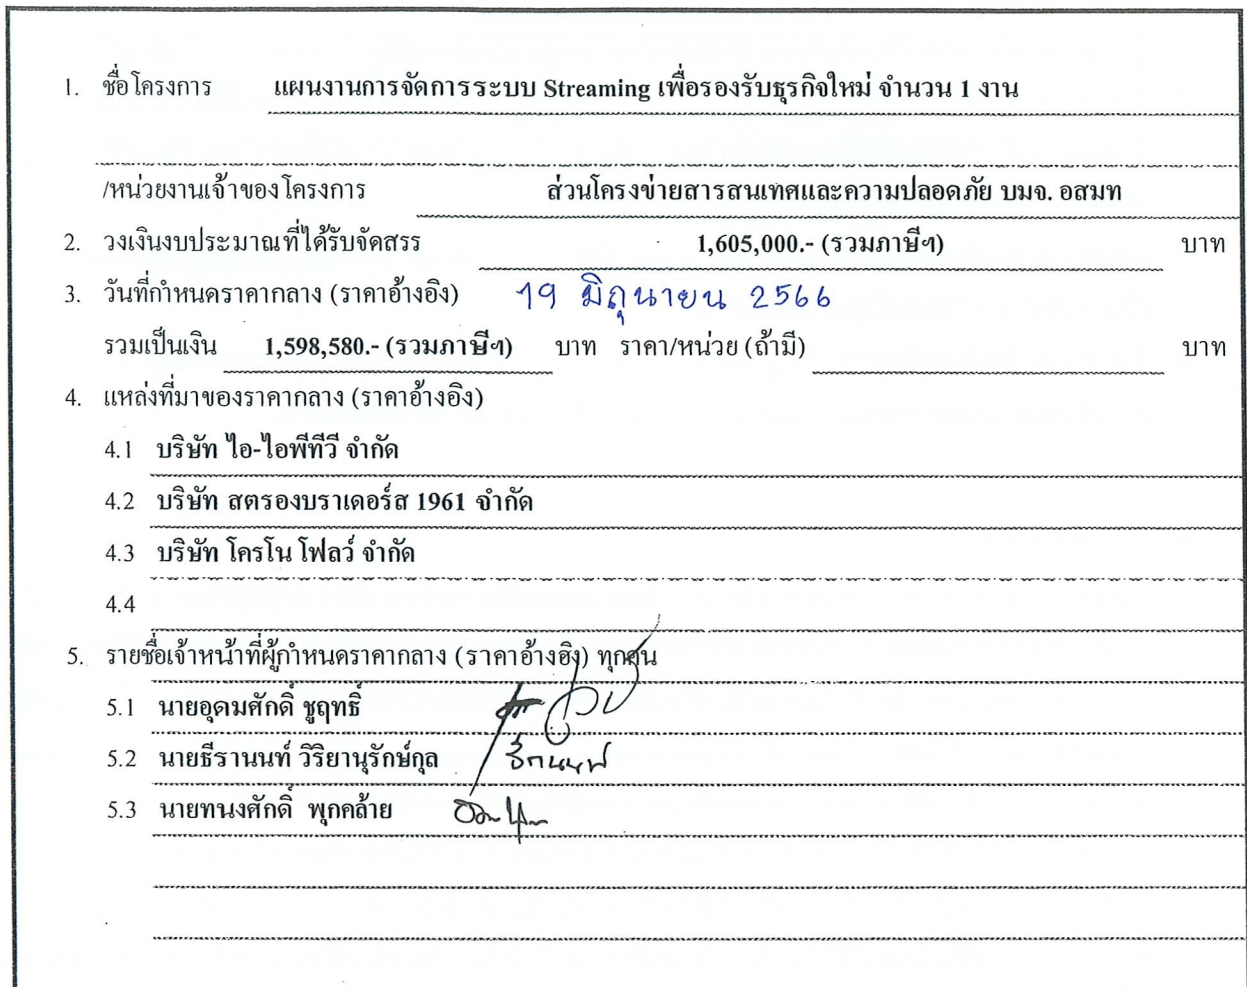 1. ชื่อโครงการ แผนงานการจัดการระบบ Streaming เพื่อรองรับธุรกิจใหม่ จำนวน 1 งาน
/หน่วยงานเจ้าของโครงการ ส่วนโครงข่ายสารสนเทศและความปลอดภัย บมจ. อสมท
2. วงเงินงบประมาณที่ได้รับจัดสรร 1,605,000.- (รวมภาษีฯ) บาท
3. วันที่กำหนดราคากลาง (ราคาอ้างอิง) 19 มิถุนายน 2566
รวมเป็นเงิน 1,598,580.- (รวมภาษีฯ) บาท ราคา/หน่วย (ถ้ามี) บาท
4. แหล่งที่มาของราคากลาง (ราคาอ้างอิง)
4.1 บริษัท ไอ-ไอพีทีวี จำกัด
4.2 บริษัท สตรองบราเดอร์ส 1961 จำกัด
4.3 บริษัท โครโน โฟลว์ จำกัด
4.4
5. รายชื่อเจ้าหน้าที่ผู้กำหนดราคากลาง (ราคาอ้างอิง) ทุกคน
5.1 นายอุดมศักดิ์ ชูฤทธิ์
5.2 นายธีรานนท์ วิริยานุรักษ์กุล
5.3 นายทนงศักดิ์ พุกคล้าย